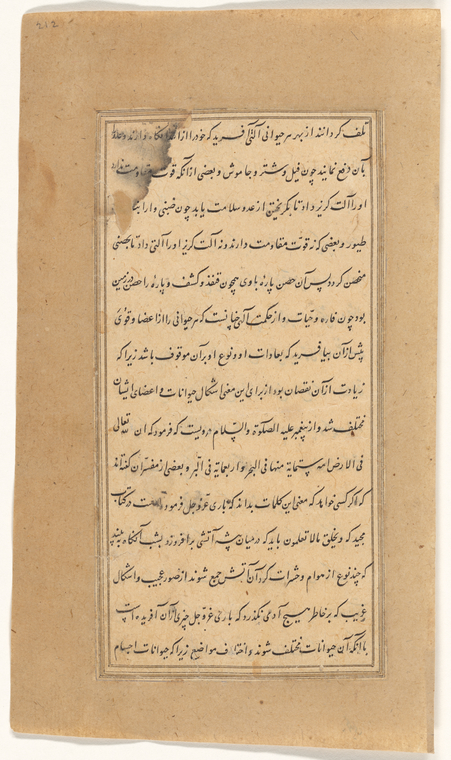 212
تلف کردانند از بهر هر حیوانی آلتی آفرید که خود را از
بآن دفع نمایند چون فیل و شتر و جاموش و بعضی از آنکه قوت مقاومت ندارد
او را آلت کریز داد تا بکریختن از عدو سلامت یابد چون
طیور و بعضی که نه قوت مقاومت دارند و نه آلت کریز او را آلتی داد تا بحصنی
متحصن کردد پس آن حصن پارهٔ باوی همچون قنفذ و کشف و پارهٔ را حصن در زمین
بود چون فاره و حیات و از حکمت آلهی چنانست که هر حیوانی را از اعضا و قوی
پیش از آن بیافرید که بعادات او و نوع او بر آن موقوف باشد زیرا که
زیادت از آن نقصان بود از برای این معنی اشکال حیوانات و اعضای ایشان
مختلف شد و از پیغمبر علیه الصلوة والسلام مرویست که فرمود که ان الله تعالی
فی الارض امة ستمایة منها فی البحر و اربعمایة فی البر و بعضی از مفسران کفته‌اند
که اکر کسی خواهد که معنی این کلمات بداند که باری عز و جل فرموده است در کتاب
مجید که و یخلق مالا تعلمون باید که در میان بیشه آتشی برافروزد بشب آنکاه ببیند
که چند نوع از هوام و حشرات کرد آن آتش جمع شوند از صور عجیب و اشکال
غریب که بر خاطر هیچ آدمی نکذرد که باری عز و جل چیزی از آن آفریده است
با آنکه آن حیوانات مختلف شوند و اختلاف مواضع زیرا که حیوانات اجسام